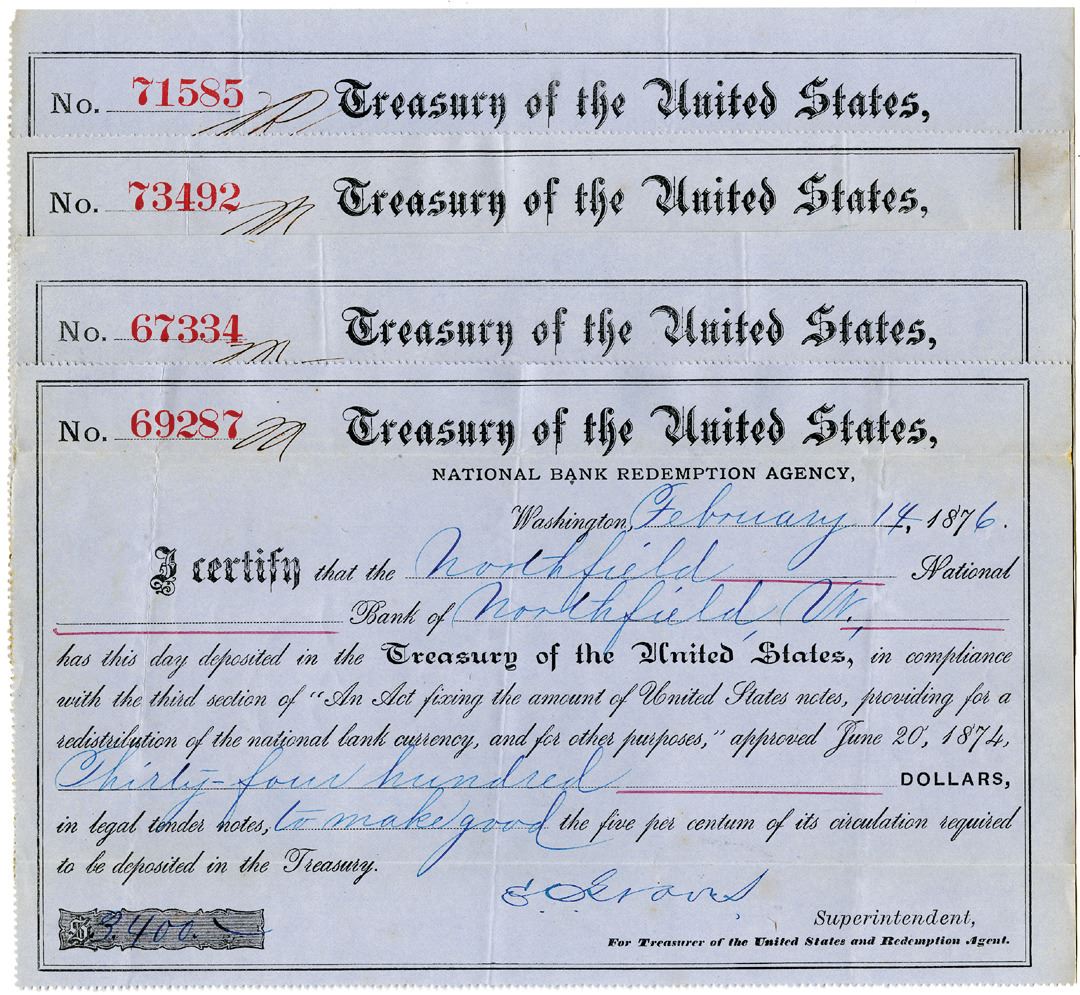 No. 71585 Treasury of the United States,
No. 73492 Treasury of the United States,
No. 67334 Treasury of the United States,
No. 69287 Treasury of the United States,
NATIONAL BANK REDEMPTION AGENCY,
Washington, February 14, 1876.
I certify that the Northfield National
Bank of Northfield, Vt.,
has this day deposited in the Treasury of the United States, in compliance
with the third section of "An Act fixing the amount of United States notes, providing for a
redistribution of the national bank currency, and for other purposes," approved June 20, 1874,
Thirty-four hundred DOLLARS,
in legal tender notes, to make good the five per centum of its circulation required
to be deposited in the Treasury.
E. O. Graves
Superintendent,
$3,400.
For Treasurer of the United States and Redemption Agent.